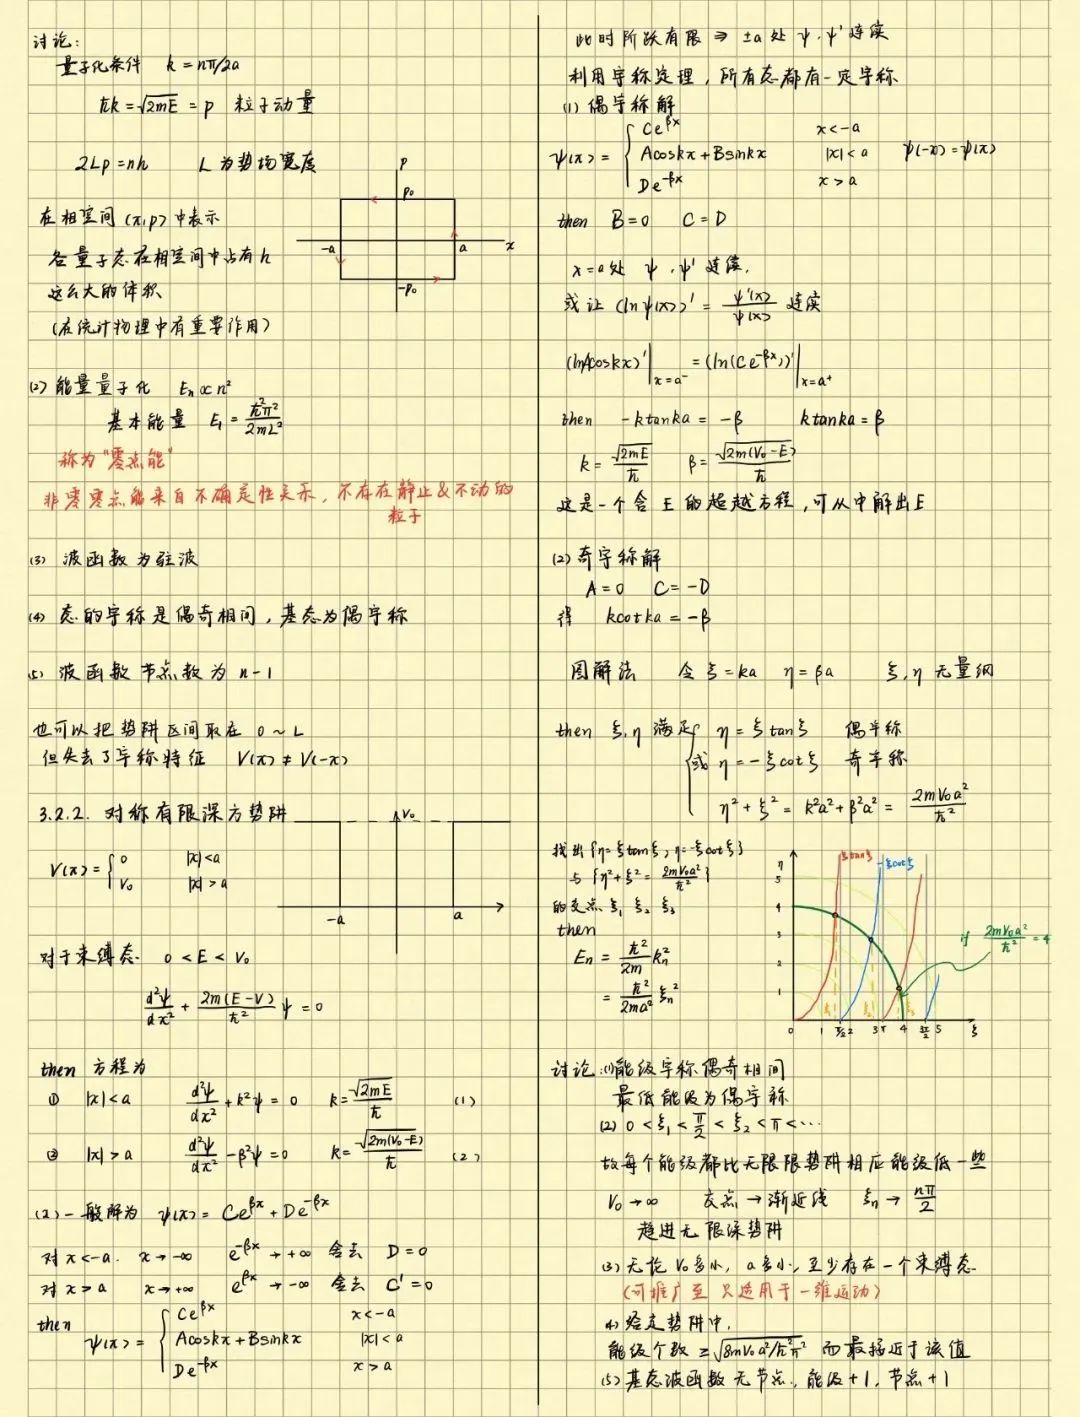 讨论:
量子化条件 k = nπ/2a
ħk = √2mE = p 粒子动量
2Lp = nh L 为势场宽度
在相空间 (x,p) 中表示
各量子态在相空间中占有 h
这么大的体积
(在统计物理中有重要作用)
p
p₀
-a
a
x
-p₀
(2) 能量量子化 Eₙ ∝ n²
基本能量 E₁ = ħ²π²/2mL²
称为"零点能"
非零零点能来自不确定性关系, 不存在静止&不动的
粒子
(3) 波函数为驻波
(4) 态的宇称是偶奇相间, 基态为偶宇称
(5) 波函数节点数为 n-1
也可以把势阱区间取在 0 ~ L
但失去了宇称特征 V(x) ≠ V(-x)
3.2.2. 对称有限深方势阱
V(x) = { 0 |x|<a
V₀ |x|>a
V₀
-a
a
对于束缚态 0 < E < V₀
d²ψ/dx² + 2m(E-V)/ħ² ψ = 0
then 方程为
① |x|<a d²ψ/dx² + k²ψ = 0 k = √2mE/ħ (1)
② |x|>a d²ψ/dx² - β²ψ = 0 k = √2m(V₀-E)/ħ (2)
(2) 一般解为 ψ(x) = Ce^βx + De^-βx
对 x<-a. x→-∞ e^-βx → +∞ 舍去 D=0
对 x>a x→+∞ e^βx → -∞ 舍去 C'=0
then
ψ(x) = { Ce^βx x<-a
Acoskx + Bsinkx |x|<a
De^-βx x>a
此时阶跃有限 ⇒ ±a处 ψ, ψ' 连续
利用宇称定理, 所有态都有一定宇称
(1) 偶宇称解
ψ(x) = { Ce^βx x<-a
Acoskx + Bsinkx |x|<a ψ(-x)=ψ(x)
De^-βx x>a
then B=0 C=D
x=a处 ψ, ψ' 连续.
或让 (lnψ(x))' = ψ'(x)/ψ(x) 连续
(lnAcoskx)'|x=a⁻ = (ln(Ce^-βx))'|x=a⁺
then -ktanka = -β ktanka = β
k = √2mE/ħ β = √2m(V₀-E)/ħ
这是一个含 E 的超越方程, 可从中解出E
(2) 奇宇称解
A=0 C=-D
得 kcotka = -β
图解法 令 ξ=ka η=βa ξ,η 无量纲
then ξ,η 满足{ η = ξtanξ 偶宇称
或 η = -ξcotξ 奇宇称
η² + ξ² = k²a² + β²a² = 2mV₀a²/ħ²
找出 {η=ξtanξ, η=-ξcotξ}
与 {η²+ξ² = 2mV₀a²/ħ²}
的交点 ξ₁ ξ₂ ξ₃
then
Eₙ = ħ²/2m kₙ²
= ħ²/2ma² ξₙ²
ξtanξ
-ξcotξ
η
5
4
3
2
1
ξ₁
ξ₂
ξ₃
0 1 π/2 2 3 π 4 3π/2 5 ξ
if 2mV₀a²/ħ² = 4
讨论: (1) 能级宇称偶奇相间
最低能级为偶宇称
(2) 0 < ξ₁ < π/2 < ξ₂ < π < …
故每个能级都比无限限势阱相应能级低一些
V₀→∞ 交点→渐近线 ξₙ → nπ/2
趋进无限深势阱
(3) 无论 V₀多小, a多小, 至少存在一个束缚态
(可推广至 只适用于一维运动)
(4) 给定势阱中,
能级个数 ≥ √8mV₀a²/ħ²π² 而最接近于该值
(5) 基态波函数无节点, 能级+1, 节点+1